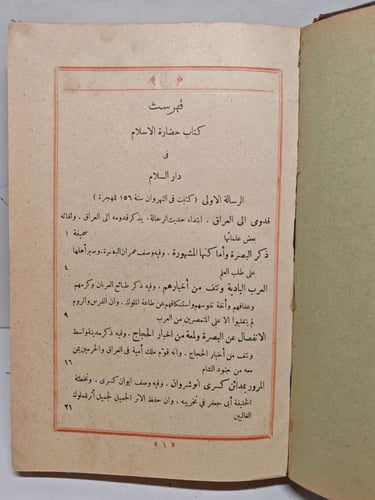 فهرست
كتاب حضارة الاسلام
فى
دار السلام
الرسالة الاولى ( كتبت فى النهروان سنة ١٥٦ للهجرة )
قدومى الى العراق . ابتداء حديث الرحالة . يذكر قدومه الى العراق . ولقائه
بعض علمائها صحيفة ١
ذكر البصرة وأماكنها المشهورة . وفيه وصف عمران البصرة . وسير أهلها
على طلب العلم ٤
العرب البادية ونتف من أخبارهم . وفيه ذكر طبائع العربان وكرمهم
وعفافهم وأنفة نفوسهم واستنكافهم عن طاعة الملوك . وان الفرس والروم
لم يتغلبوا الا على المتحضرين من العرب ٩
الانفصال عن البصرة ولمعة من اخبار الحجاج . وفيه ذكر مدينة واسط
ونتف من أخبار الحجاج . وانه قوّم ملك أمية فى العراق والحرمين بمن
معه من جنود الشام ١٦
المرور بمدائن كسرى انوشروان . وفيه وصف ايوان كسرى . وتخطئة
الخليفة أبى جعفر فى تخريبه . وان حفظ الاثر الجميل لجميل أثر للملوك
الغالبين ٢١
﴿ ١ ﴾